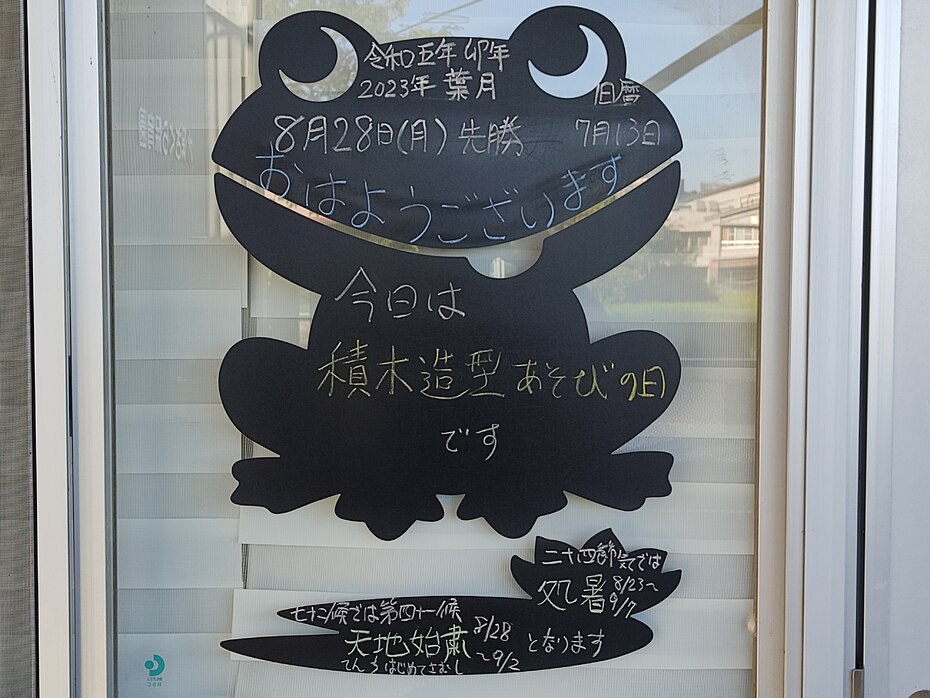 令和五年 卯年
2023年 葉月
旧暦
8月28日(月) 先勝 7月13日
おはようございます
今日は
積木造型あそびの日
です
二十四節気では
処暑 8/23〜9/7
七十二候では第四十一候
天地始粛 8/28〜9/2 となります
てんちはじめてさむし